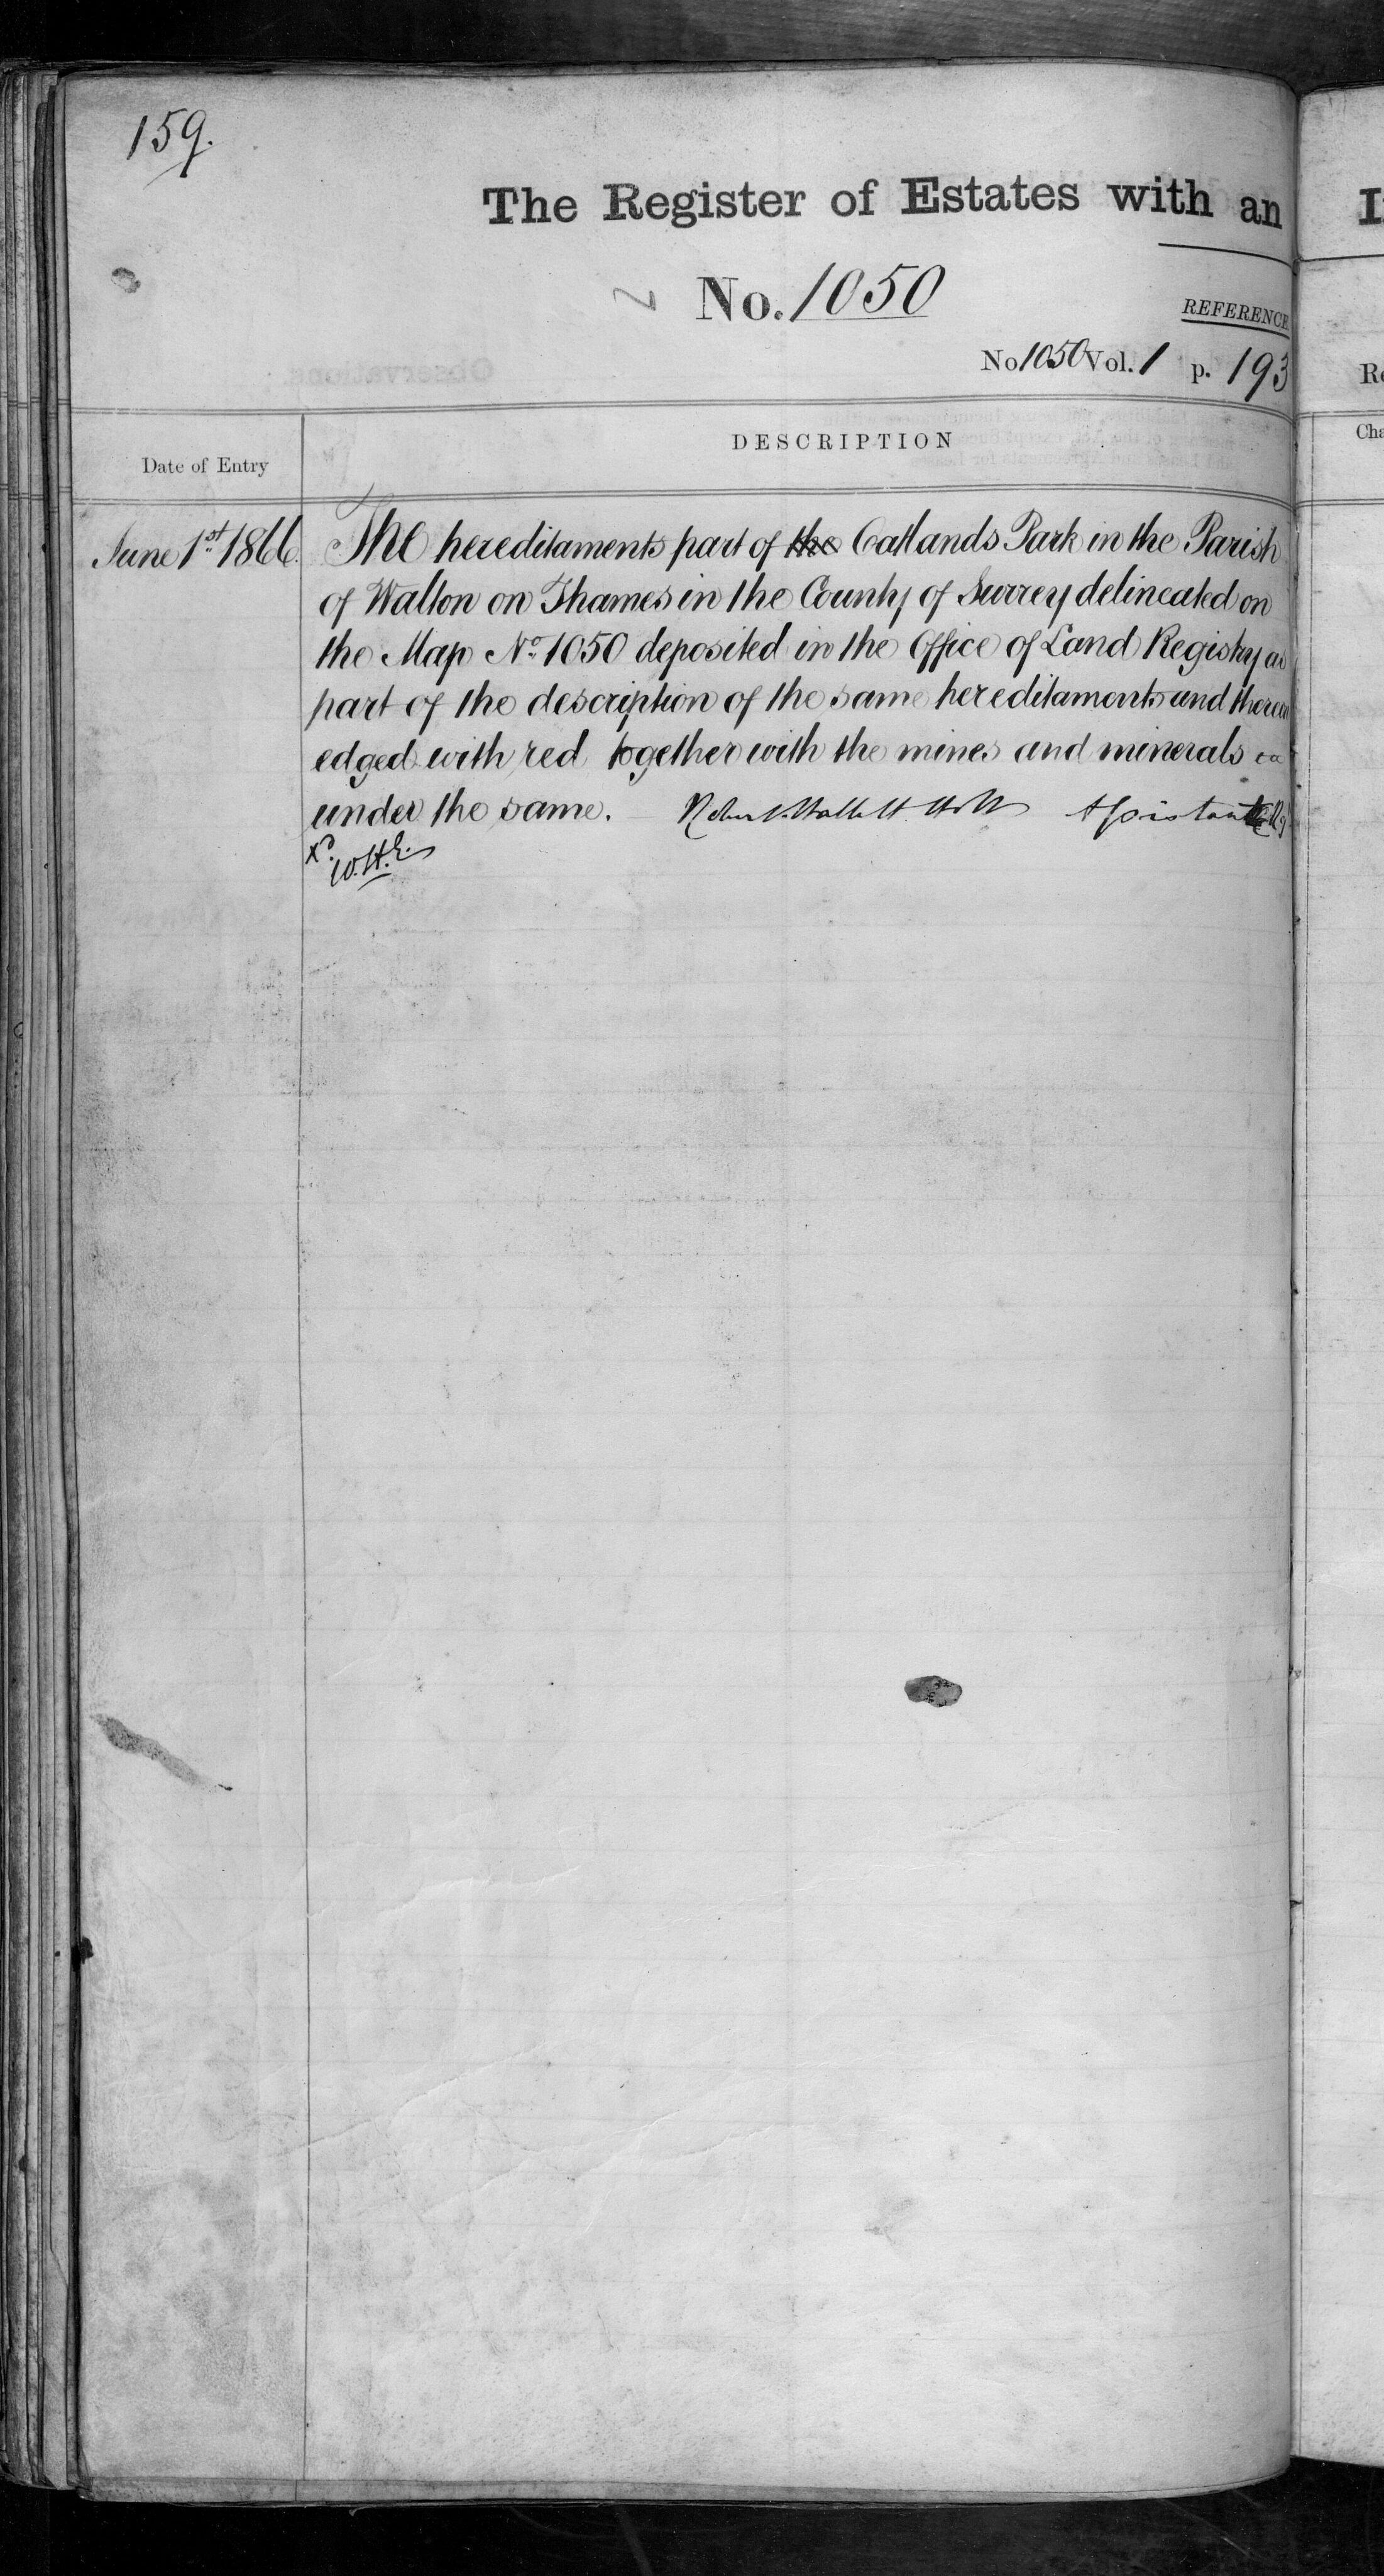 159.
The Register of Estates with an
No. 1050
REFERENCE
No 1050 Vol. 1 p. 193
DESCRIPTION
Date of Entry
June 1st 1866. The hereditaments part of the Oatlands Park in the Parish
of Walton on Thames in the County of Surrey delineated on
the Map No. 1050 deposited in the Office of Land Registry as
part of the description of the same hereditaments and thereon
edged with red together with the mines and minerals
under the same. Robert Hallett Holt Assistant
W.H.E.